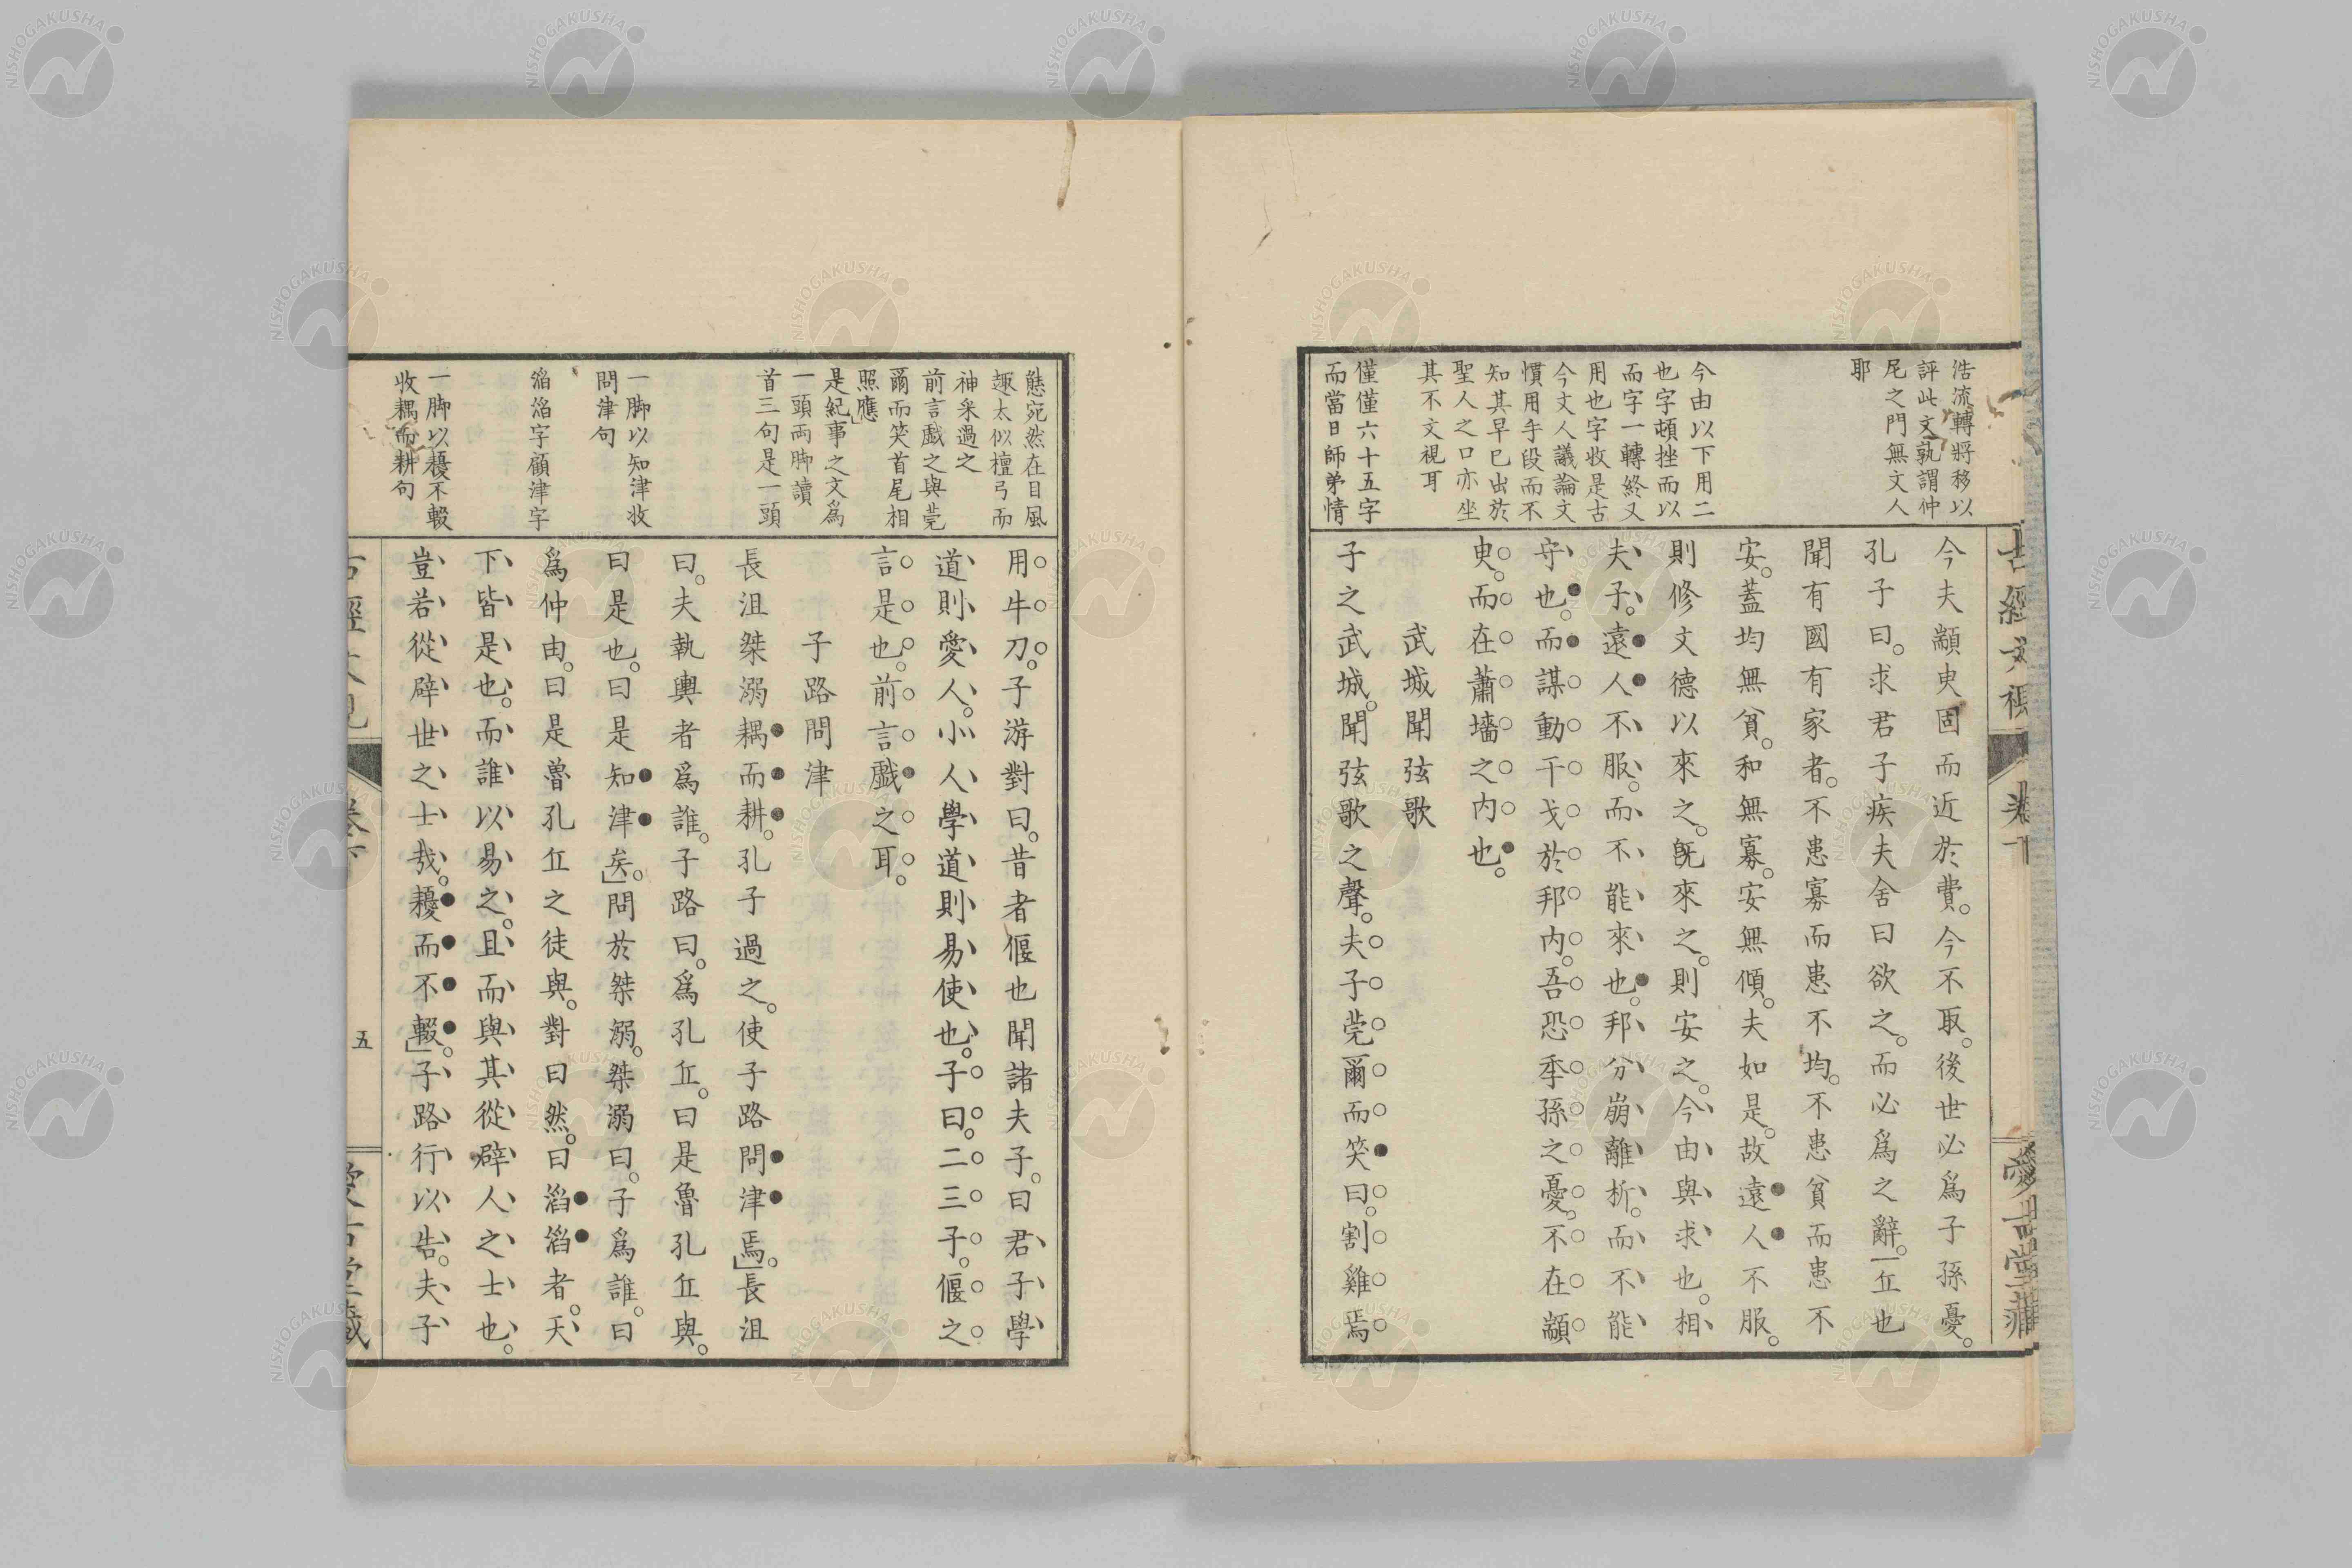 浩流轉將移以
評此文孰謂仲
尼之門無文人
耶
今由以下用二
也字頓挫而以
而字一轉終又
用也字收是古
今文人議論文
慣用手段而不
知其早已出於
聖人之口亦坐
其不文視耳
僅僅六十五字
而當日師弟情
今夫顓臾固而近於費。今不取。後世必爲子孫憂。
孔子曰。求君子疾夫舍曰欲之。而必爲之辭。丘也
聞有國有家者。不患寡而患不均。不患貧而患不
安。蓋均無貧。和無寡。安無傾。夫如是。故遠人不服。
則修文德以來之。既來之。則安之。今由與求也。相
夫子。遠人不服。而不能來也。邦分崩離析。而不能
守也。而謀動干戈於邦內。吾恐季孫之憂。不在顓
臾。而在蕭墻之內也。
武城聞弦歌
子之武城。聞弦歌之聲。夫子莞爾而笑曰。割雞焉
態宛然在目風
趣太似檀弓而
神采過之
前言戲之與莞
爾而笑首尾相
照應
是紀事之文爲
一頭兩脚讀
首三句是一頭
一脚以知津收
問津句
滔滔字顧津字
一脚以耰不輟
收耦而耕句
用牛刀。子游對曰。昔者偃也聞諸夫子。曰君子學
道則愛人。小人學道則易使也。子曰。二三子。偃之
言是也。前言戲之耳。
子路問津
長沮桀溺耦而耕。孔子過之。使子路問津焉。長沮
曰。夫執輿者爲誰。子路曰。爲孔丘。曰是魯孔丘與。
曰是也。曰是知津矣。問於桀溺。桀溺曰。子爲誰。曰
爲仲由。曰是魯孔丘之徒與。對曰然。曰滔滔者。天
下皆是也。而誰以易之。且而與其從辟人之士也。
豈若從辟世之士哉。耰而不輟。子路行以告。夫子
五
NISHOGAKUSHA